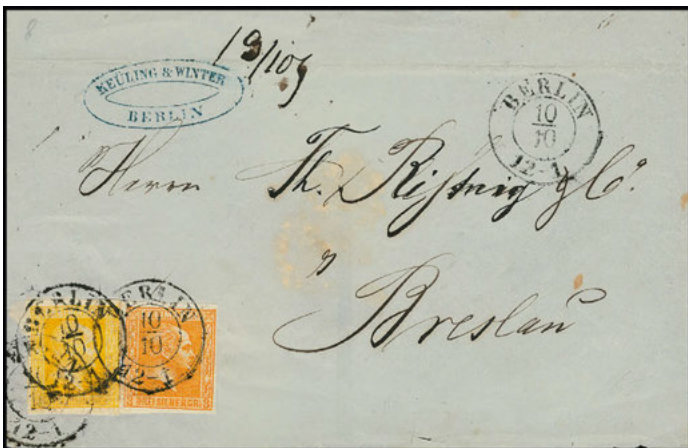 8
19/10
KEULING & WINTER
BERLIN
BERLIN
10
10
12-1
Herrn
Th.
& Co.
Breslau
BERLIN
10
10
12-1
BERLIN
10
10
12-1
12-1